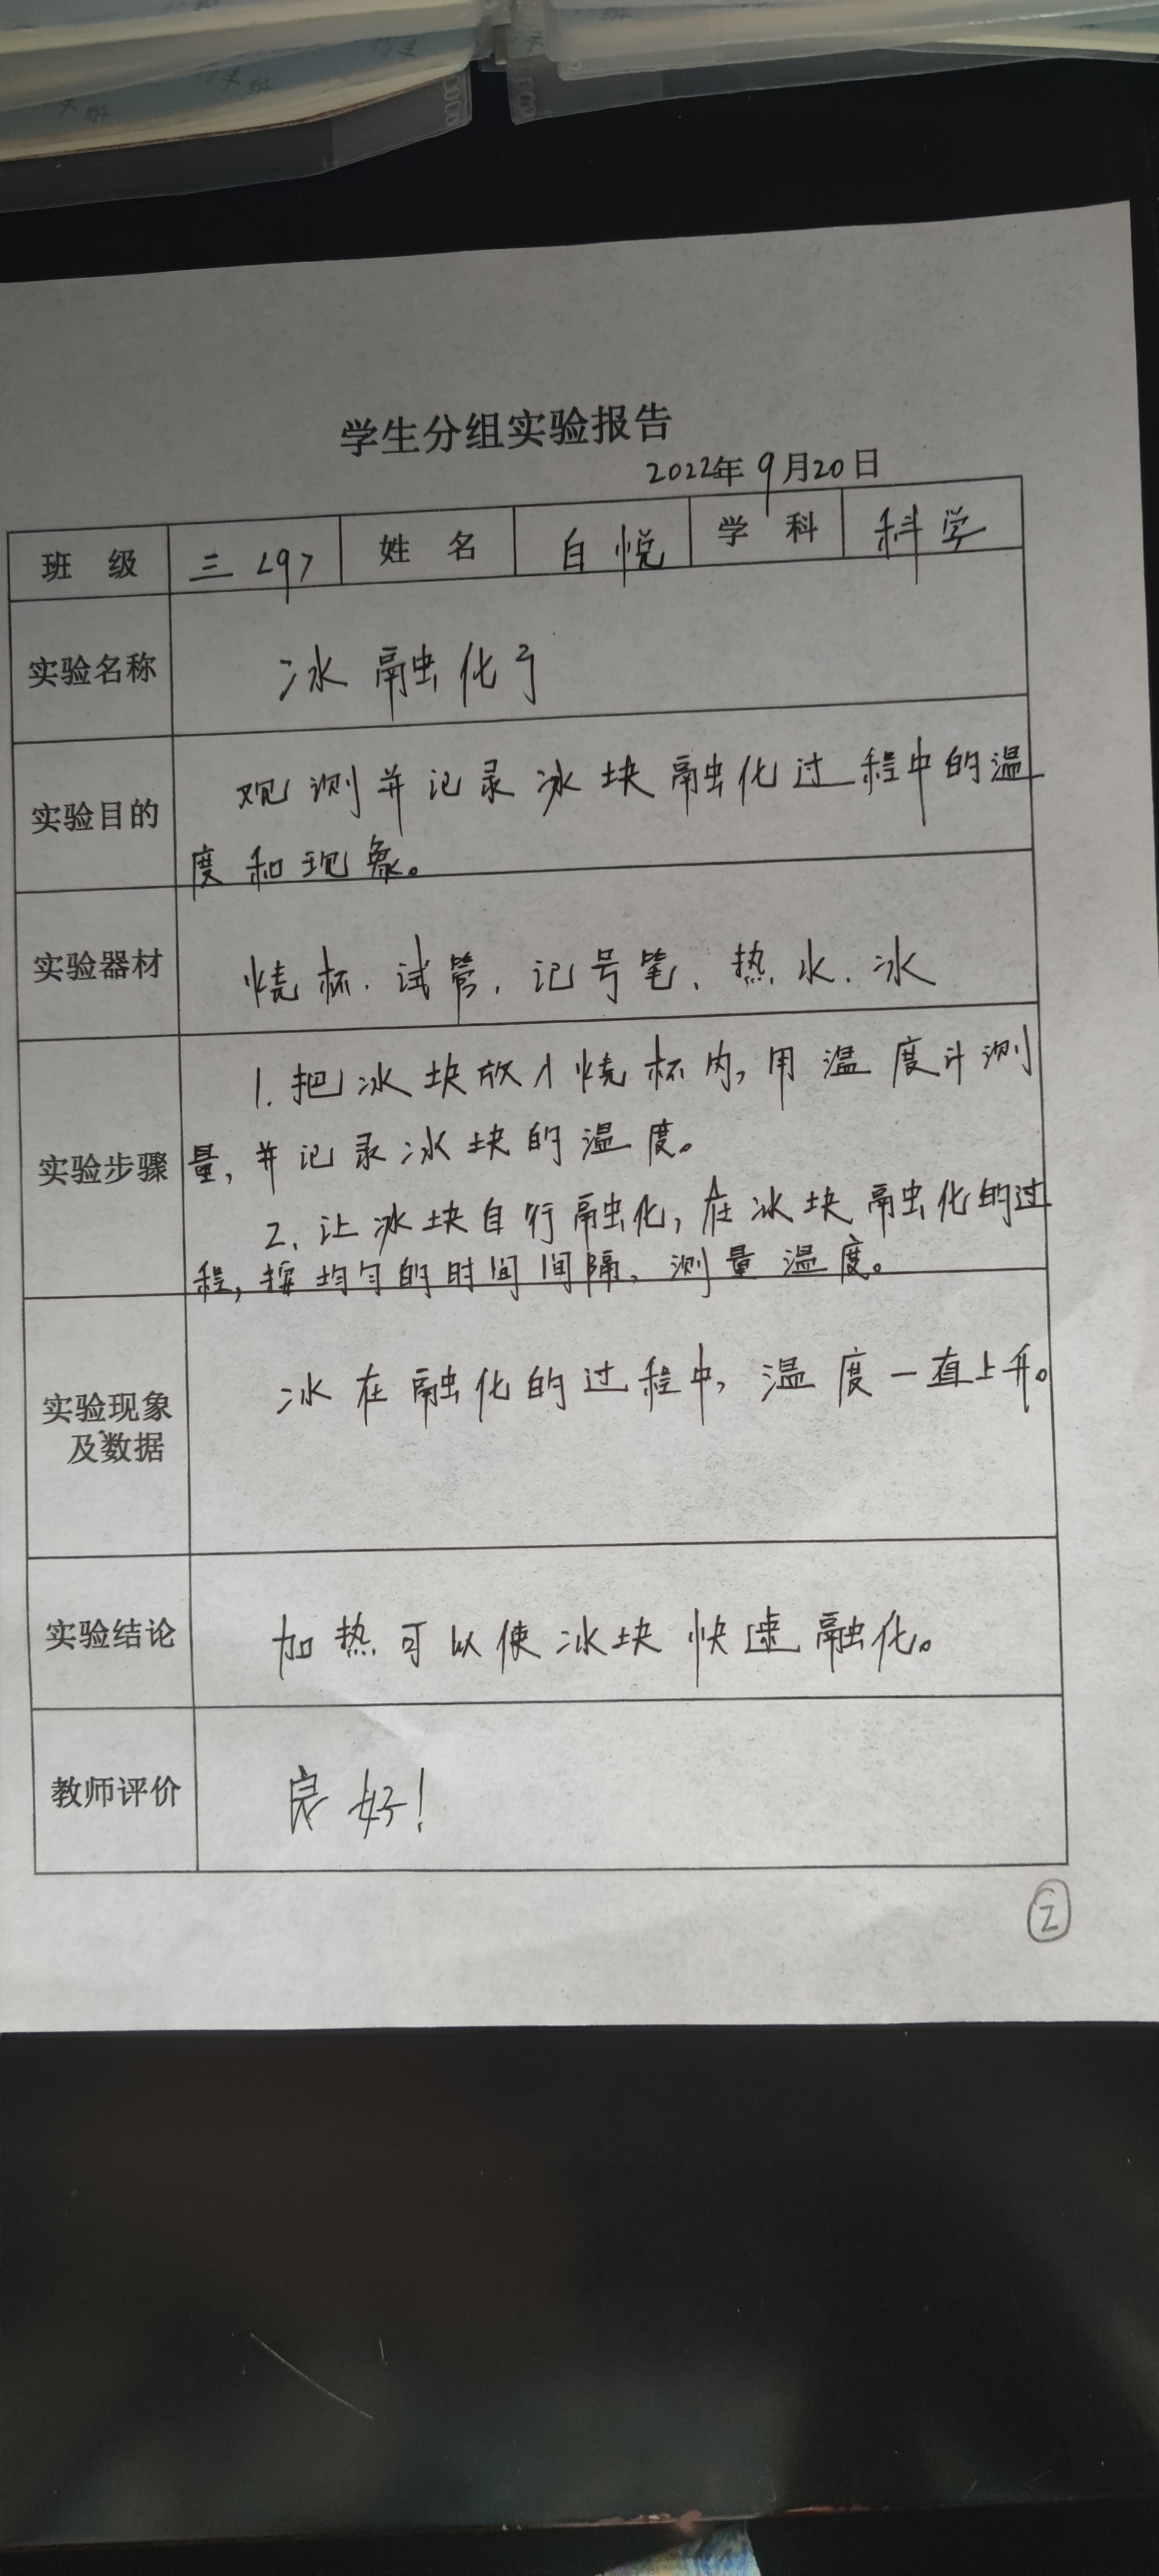 学生分组实验报告
2022年9月20日
班 级 三<9> 姓 名 白悦 学 科 科学
实验名称 冰融化了
实验目的 观测并记录冰块融化过程中的温
度和现象。
实验器材 烧杯、试管、记号笔、热水、冰
1.把冰块放入烧杯内,用温度计测
实验步骤 量,并记录冰块的温度。
2、让冰块自行融化,在冰块融化的过
程,按均匀的时间间隔,测量温度。
冰在融化的过程中,温度一直上升。
实验现象
及数据
实验结论 加热可以使冰块快速融化。
教师评价 良好!
②